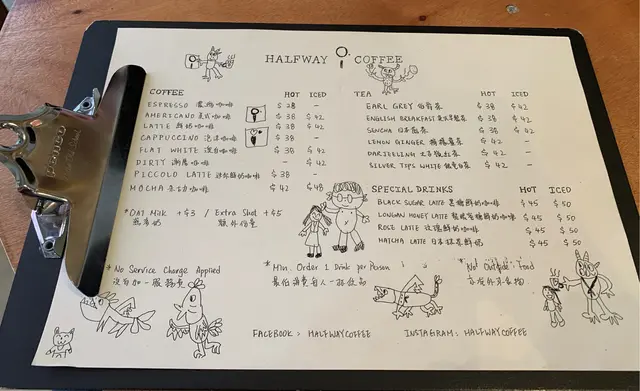 HALFWAY COFFEE
COFFEE HOT ICED
ESPRESSO 濃縮咖啡 $ 28 –
AMERICANO 美式咖啡 $ 38 $ 42
LATTE 鮮奶咖啡 $ 38 $ 42
CAPPUCCINO 泡沫咖啡 $ 38 $ 42
FLAT WHITE 澳白咖啡 $ 38 $ 42
DIRTY 咖啡 – $ 42
PICCOLO LATTE 咖啡 $ 38 –
MOCHA 朱古力咖啡 $ 42 $ 48
*Oat Milk +$3 / Extra Shot +$5
燕麥奶 額外份量
TEA HOT ICED
EARL GREY 伯爵茶 $ 38 $ 42
ENGLISH BREAKFAST 英式早餐茶 $ 38 $ 42
SENCHA 日本煎茶 $ 38 $ 42
LEMON GINGER 檸檬薑茶 $ 42 –
DARJEELING 大吉嶺紅茶 $ 42 –
SILVER TIPS WHITE $ 42 –
SPECIAL DRINKS HOT ICED
BLACK SUGAR LATTE 黑糖鮮奶咖啡 $ 45 $ 50
LONGAN HONEY LATTE 龍眼蜜糖鮮奶咖啡 $ 45 $ 50
ROSE LATTE 玫瑰鮮奶咖啡 $ 45 $ 50
MATCHA LATTE 日本抹茶鮮奶 $ 45 $ 50
* No Service Charge Applied
沒有加一服務費
*Min. Order 1 Drink per Person
最低消費每人一杯飲品
*No Outside Food
FACEBOOK : HALFWAYCOFFEE INSTAGRAM : HALFWAYCOFFEE
penco